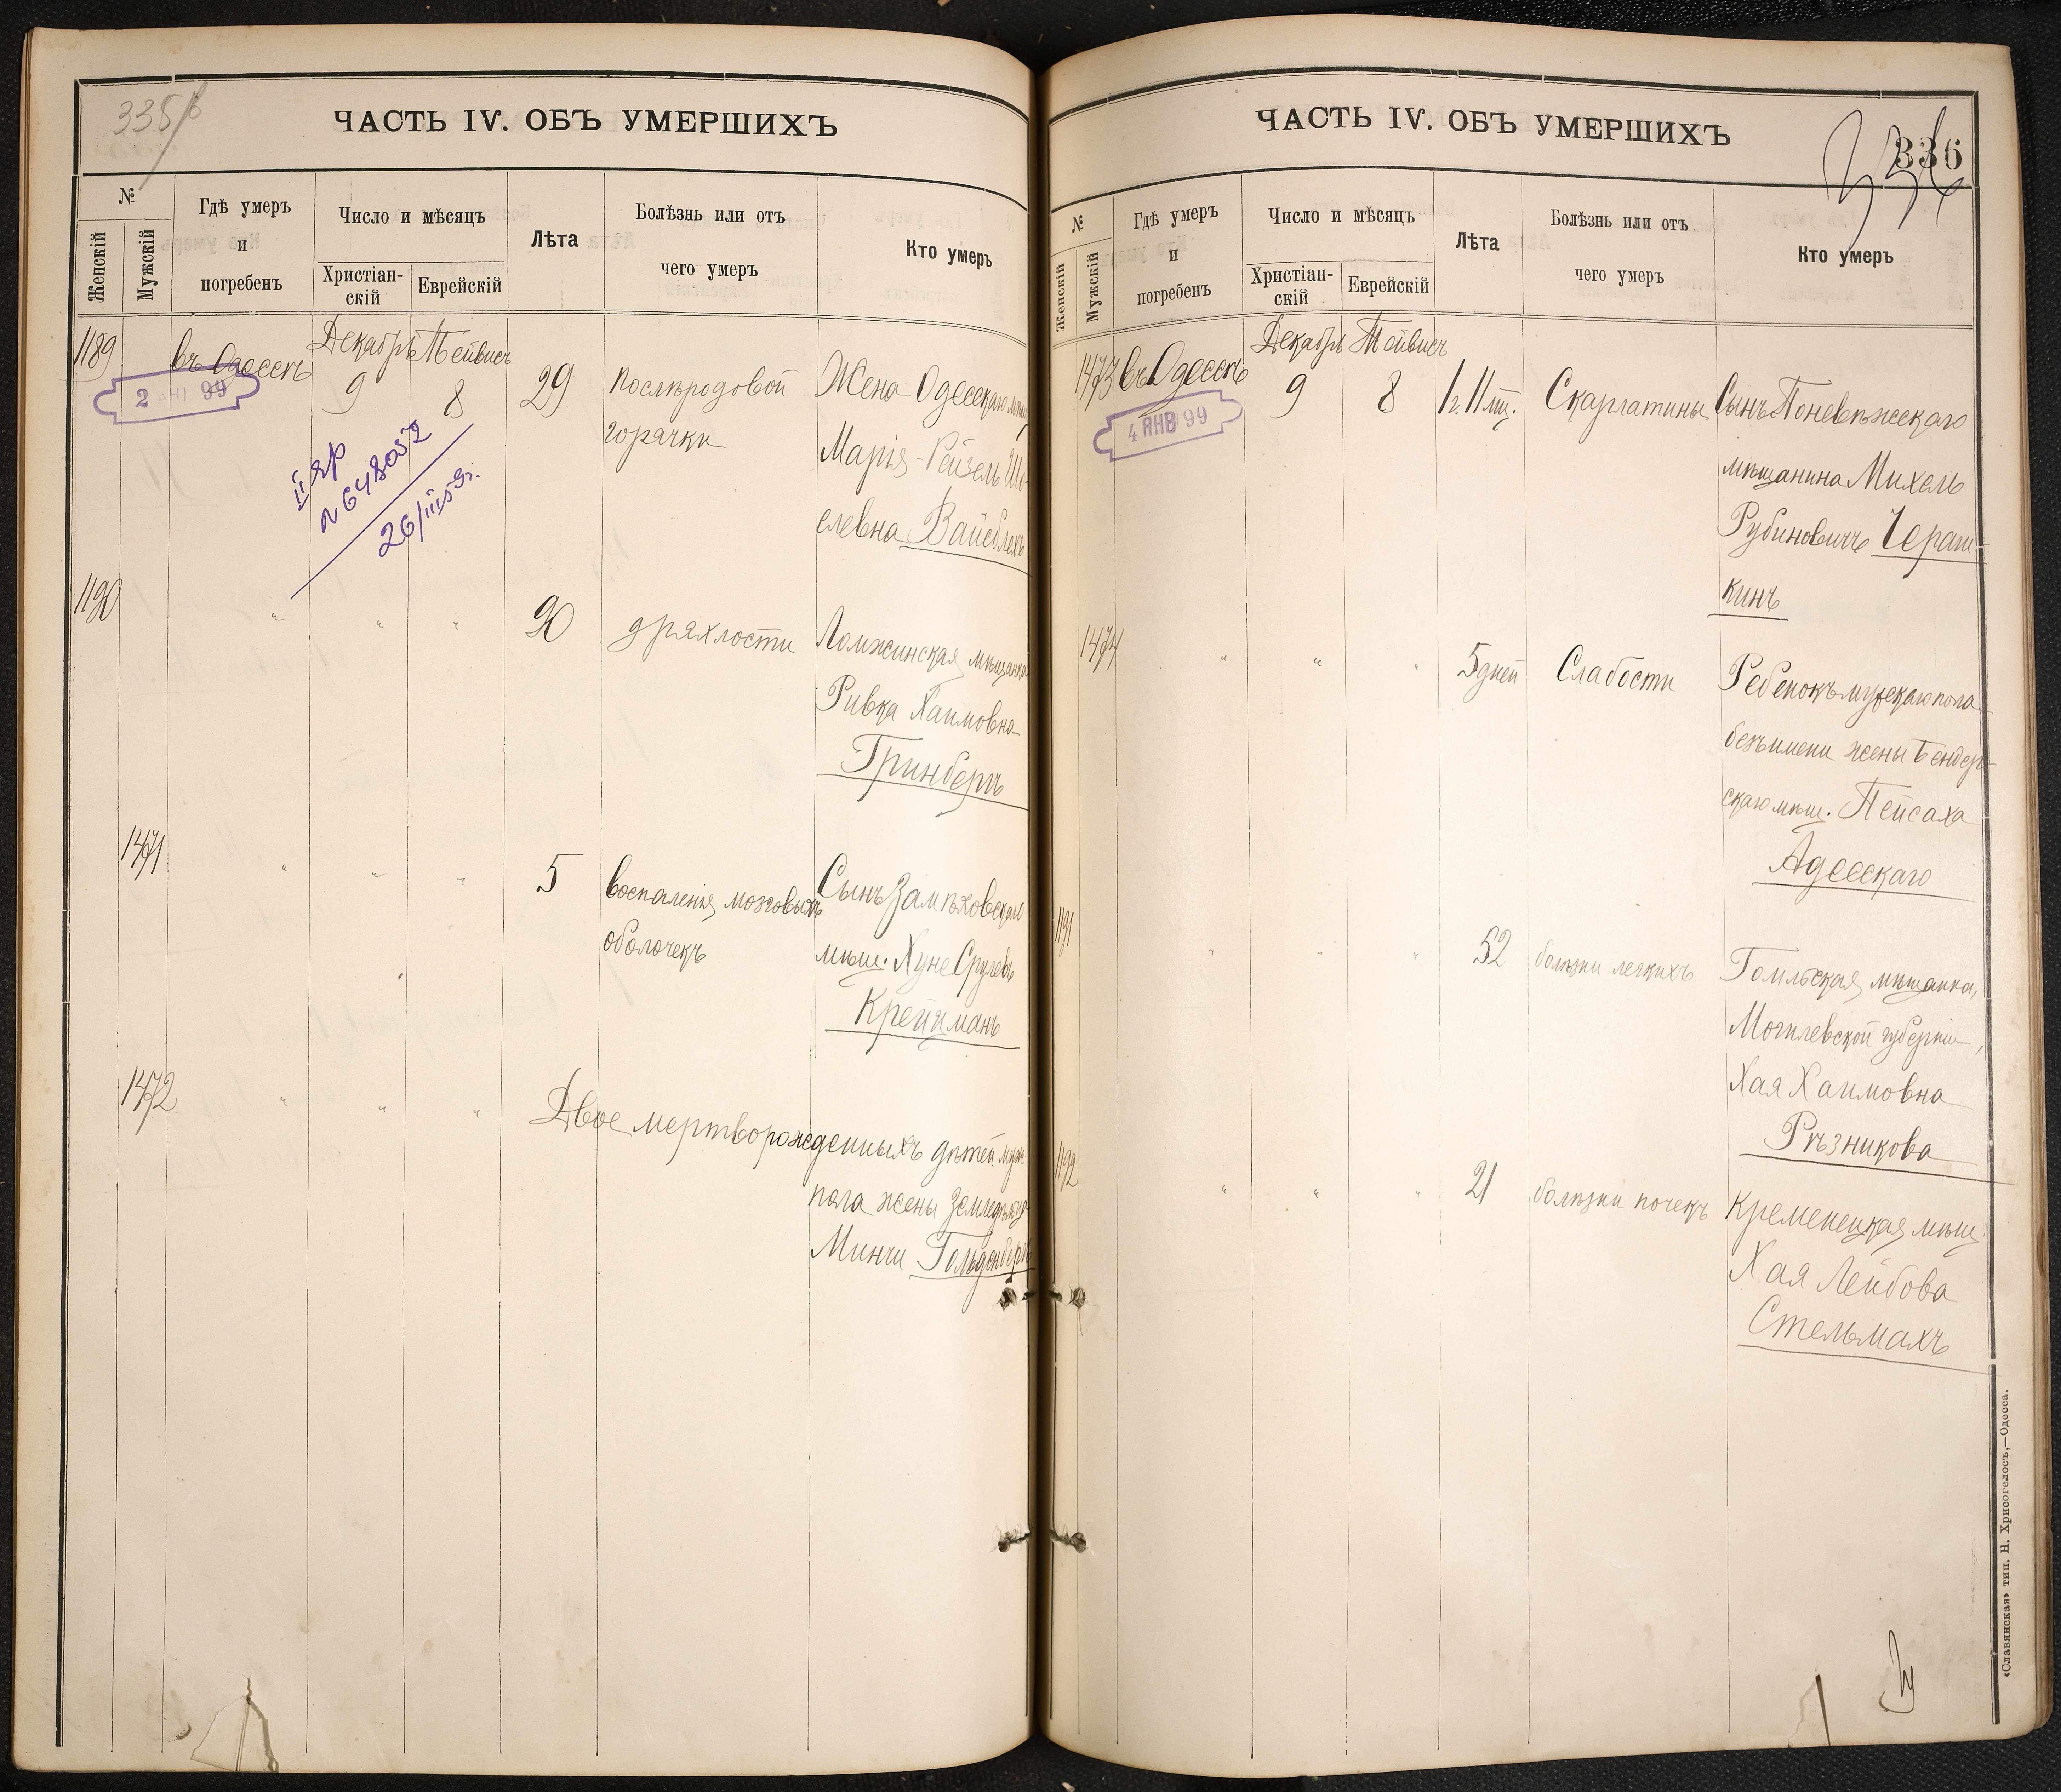 335/б
ЧАСТЬ IV. ОБЪ УМЕРШИХЪ
№
Женскій
Мужскій
Гдѣ умеръ
и
погребенъ
Число и мѣсяцъ
Христіан-
скій
Еврейскій
Лѣта
Болѣзнь или отъ
чего умеръ
Кто умеръ
1189
въ Одессѣ
Декабрь Тейвисъ
9 8
29
послѣродовой
горячки
Жена Одесскаго мѣщ.
Марія-Рейзель
елевна Вайсблехъ
2 ЯНВ 99
II ЯР
№ 648052
26/III 59г.
1190
" " "
90
дряхлости
Ломжинская мѣщанка
Ривка Хаимовна
Гринбергъ
1471
" " "
5
воспаленія мозговыхъ
оболочекъ
Сынъ Замѣховскаго
мѣщ. Хуне Срулевъ
Крейчманъ
1472
" " "
Двое мертворожденныхъ дѣтей муж.
пола жены
Минчи Гольденбергъ
ЧАСТЬ IV. ОБЪ УМЕРШИХЪ
336
№
Женскій
Мужскій
Гдѣ умеръ
и
погребенъ
Число и мѣсяцъ
Христіан-
скій
Еврейскій
Лѣта
Болѣзнь или отъ
чего умеръ
Кто умеръ
1473
въ Одессѣ
Декабрь Тейвисъ
9 8
1 г. 11 мц.
Скарлатины
Сынъ Поневѣжскаго
мѣщанина Михель
Рубиновичъ Чераш-
кинъ
4 ЯНВ 99
1474
" " "
5 дней
Слабости
Ребенокъ мужскаго пола
безъ имени жены Бендер-
скаго мѣщ. Пейсаха
Адесскаго
1191
" " "
52
болѣзни легкихъ
Гомльская мѣщанка,
Могилевской губерніи,
Хая Хаимовна
Рѣзникова
1192
" " "
21
болѣзни почекъ
Кременецкая мѣщ.
Хая Лейбова
Стельмахъ
«Славянская» тип. Н. Хрисогелосъ,—Одесса.